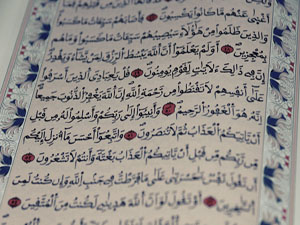 أغنى عنهم ما كانوا يكسبون
والذين ظلموا من هؤلاء سيصيبهم سيئات ما كسبوا وما هم
بمعجزين أولم يعلموا أن الله يبسط الرزق لمن يشاء ويقدر
إن في ذلك لآيات لقوم يؤمنون قل يا عبادي الذين أسرفوا
على أنفسهم لا تقنطوا من رحمة الله إن الله يغفر الذنوب جميعا
إنه هو الغفور الرحيم وأنيبوا إلى ربكم وأسلموا له من قبل
أن يأتيكم العذاب ثم لا تنصرون واتبعوا أحسن ما أنزل إليكم
من ربكم من قبل أن يأتيكم العذاب بغتة وأنتم لا تشعرون
أن تقول نفس يا حسرتى على ما فرطت في جنب الله وإن كنت لمن
الساخرين أو تقول لو أن الله هداني لكنت من المتقين